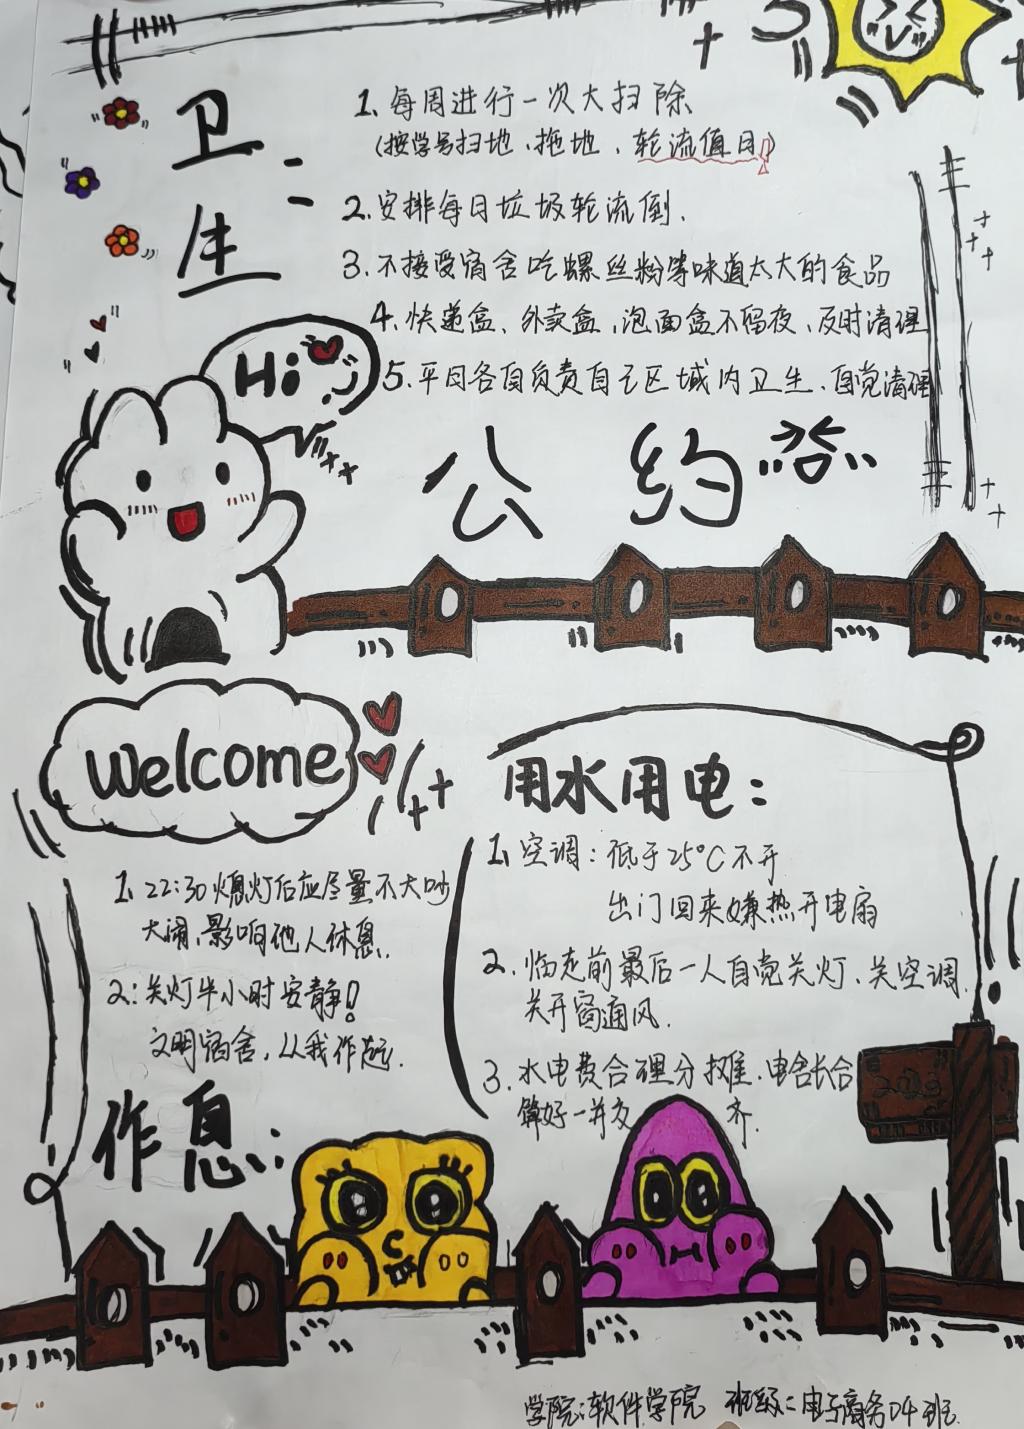 卫生：
1、每周进行一次大扫除
(按学号扫地、拖地、轮流值日)
2、安排每日垃圾轮流倒.
3、不接受宿舍吃螺丝粉等味道太大的食品
4、快递盒、外卖盒、泡面盒不留夜、及时清理
5、平日各自负责自己区域内卫生、自觉清理
Hi
公约
Welcome
1、22:30熄灯后应尽量不大吵
大闹、影响他人休息.
2：关灯半小时安静！
文明宿舍，从我作起.
作息：
用水用电：
1、空调：低于25°C不开
出门回来嫌热开电扇
2、临走前最后一人自觉关灯、关空调、
关开窗通风.
3、水电费合理分摊、由舍长合
算好一并交齐.
学院：软件学院 班级：电子商务04班